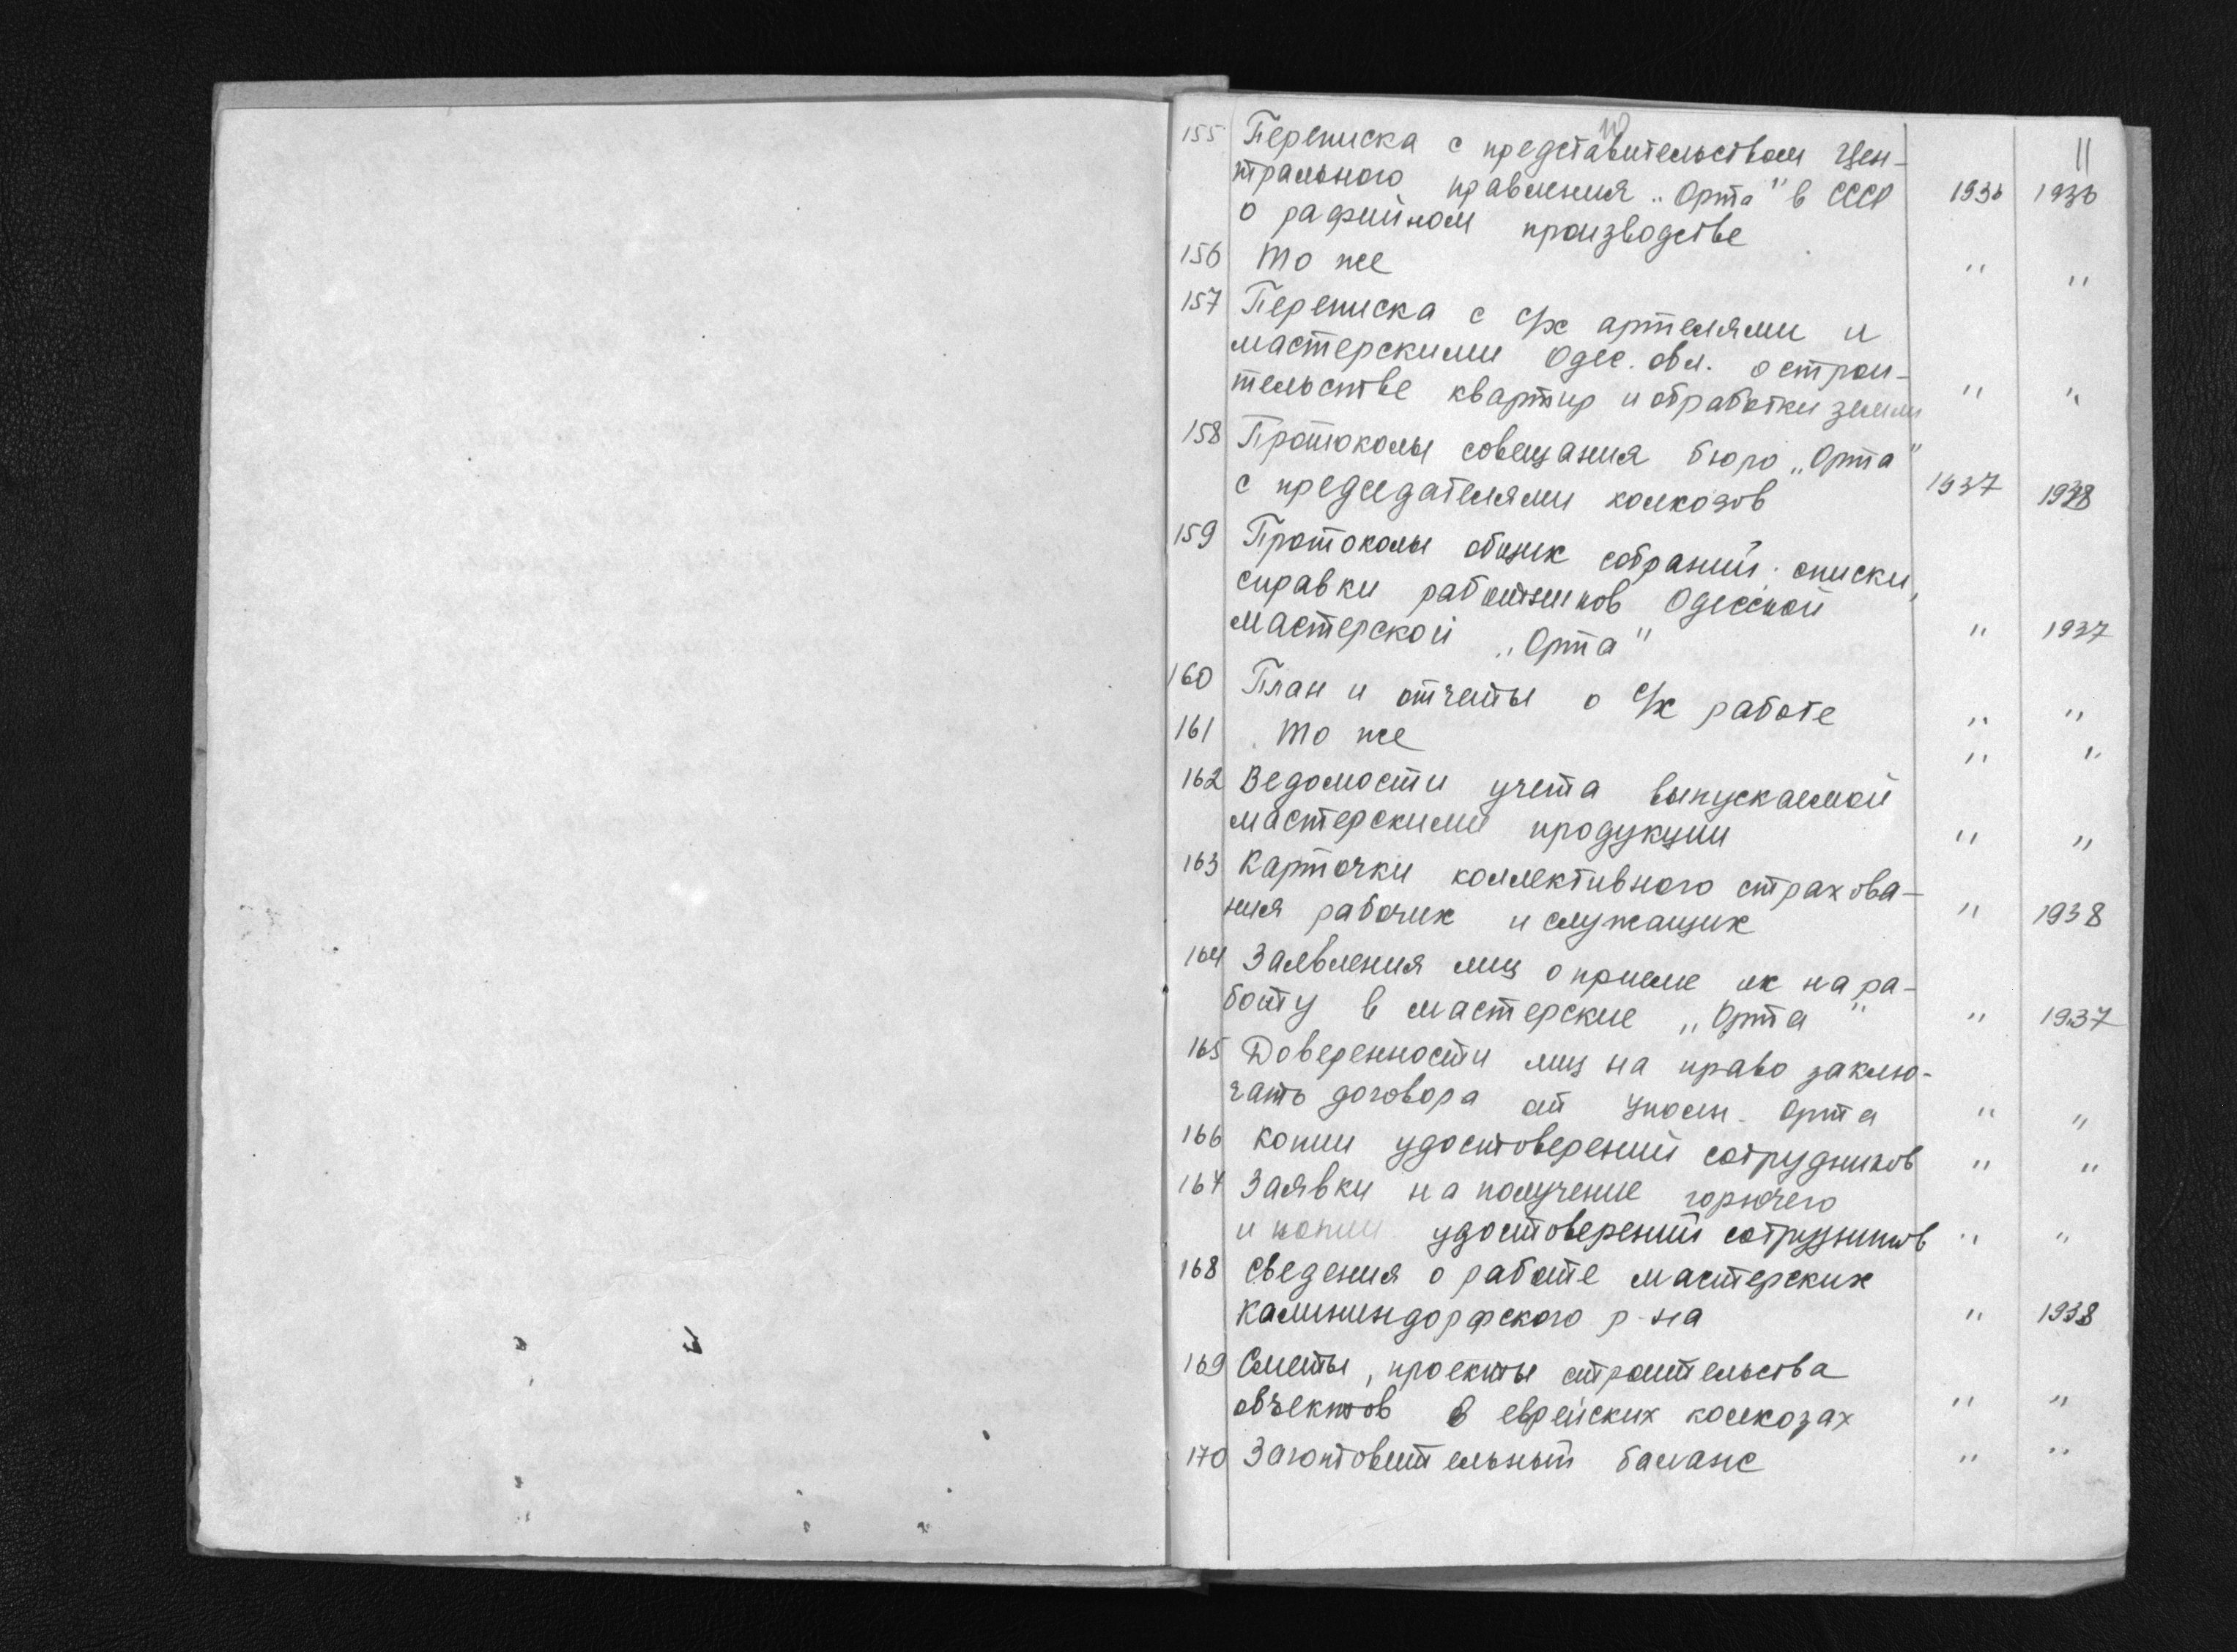 10
11
155 Переписка с представительством Цен-
трального правления „Орта" в СССР 1936 1936
о рафийном производстве
156 то же " "
157 Переписка с с/х артелями и
мастерскими Одес. обл. о строи-
тельстве квартир и обработки земли " "
158 Протоколы совещания бюро „Орта"
с председателями колхозов 1937 1938
159 Протоколы общих собраний, списки,
справки работников Одесской
мастерской „Орта" " 1937
160 План и отчеты о с/х работе " "
161 то же " "
162 Ведомости учета выпускаемой
мастерскими продукции " "
163 Карточки коллективного страхова-
ния рабочих и служащих " 1938
164 Заявления лиц о приеме их на ра-
боту в мастерские „Орта" " 1937
165 Доверенности лиц на право заклю-
чать договора от Уполн. Орта " "
166 Копии удостоверений сотрудников " "
167 Заявки на получение горючего
и копии удостоверений сотрудников " "
168 Сведения о работе мастерских
Калининдорфского р-на " 1938
169 Сметы, проекты строительства
объектов в еврейских колхозах " "
170 Заготовительный баланс " "